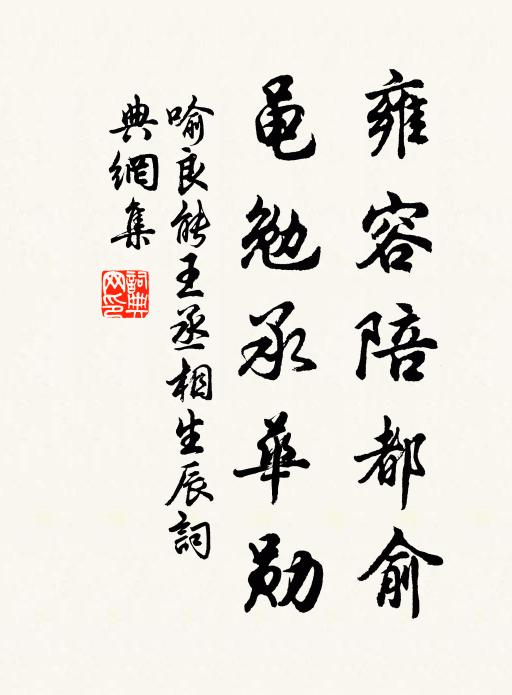 雍容陪都俞
黽勉承華勛
喻良能王丞相生辰詞
典網集
詞典
网印